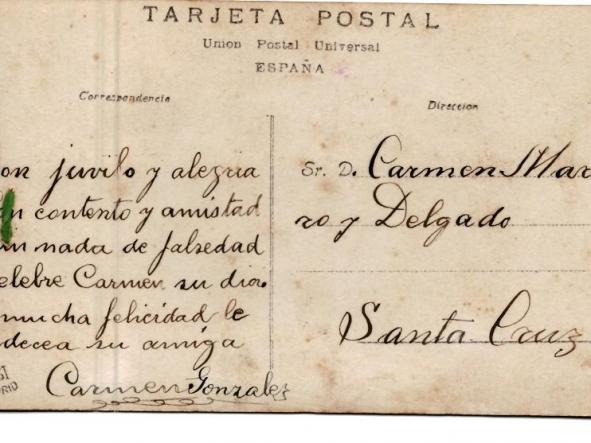 TARJETA POSTAL
Union Postal Universal
ESPAÑA
Correspondencia
Direccion
on juvilo y alegria
n contento y amistad
n nada de falsedad
elebre Carmen su dia
mucha felicidad le
decea su amiga
Carmen Gonzalez
Sr. D. Carmen Mar
ro y Delgado
Santa Cruz